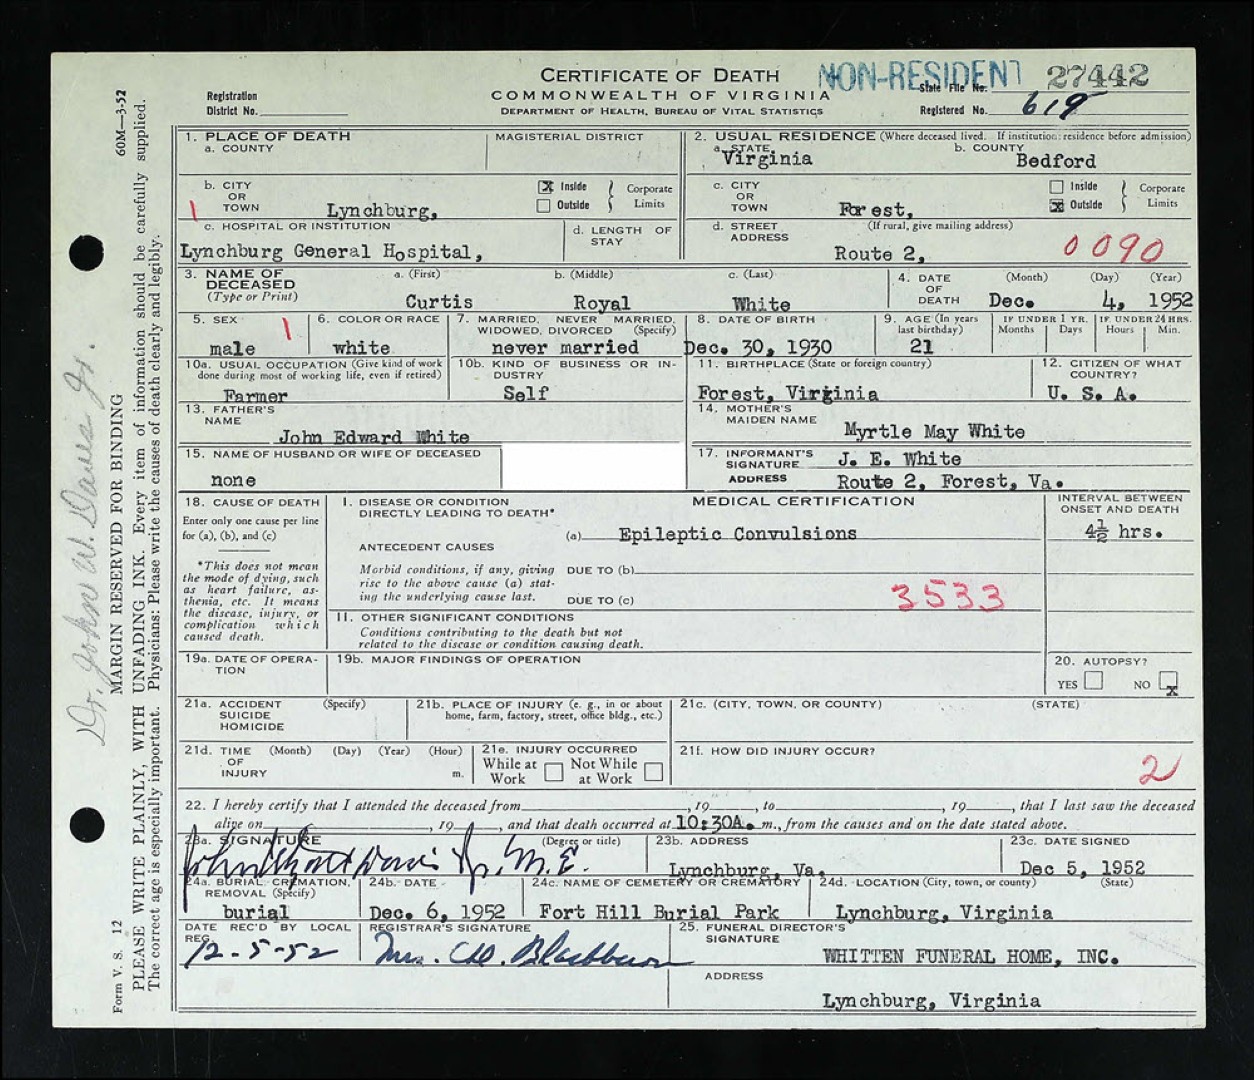 CERTIFICATE OF DEATH
COMMONWEALTH OF VIRGINIA
DEPARTMENT OF HEALTH, BUREAU OF VITAL STATISTICS
NON-RESIDENT
27442
State File No.
Registered No. 619
Registration
District No.
60M—3-52
1. PLACE OF DEATH
a. COUNTY
MAGISTERIAL DISTRICT
2. USUAL RESIDENCE (Where deceased lived. If institution: residence before admission)
a. STATE
Virginia
b. COUNTY
Bedford
b. CITY
OR
TOWN
1
Lynchburg,
Inside
Outside
Corporate
Limits
c. CITY
OR
TOWN
Forest,
Inside
Outside
Corporate
Limits
c. HOSPITAL OR INSTITUTION
Lynchburg General Hospital,
d. LENGTH OF
STAY
d. STREET
ADDRESS
(If rural, give mailing address)
Route 2,
0090
3. NAME OF
DECEASED
(Type or Print)
a. (First)
Curtis
b. (Middle)
Royal
c. (Last)
White
4. DATE
OF
DEATH
(Month) (Day) (Year)
Dec. 4, 1952
5. SEX
male
1
6. COLOR OR RACE
white
7. MARRIED, NEVER MARRIED,
WIDOWED, DIVORCED (Specify)
never married
8. DATE OF BIRTH
Dec. 30, 1930
9. AGE (In years
last birthday)
21
IF UNDER 1 YR.
Months Days
IF UNDER 24 HRS.
Hours Min.
10a. USUAL OCCUPATION (Give kind of work
done during most of working life, even if retired)
Farmer
10b. KIND OF BUSINESS OR IN-
DUSTRY
Self
11. BIRTHPLACE (State or foreign country)
Forest, Virginia
12. CITIZEN OF WHAT
COUNTRY?
U. S. A.
13. FATHER'S
NAME
John Edward White
14. MOTHER'S
MAIDEN NAME
Myrtle May White
15. NAME OF HUSBAND OR WIFE OF DECEASED
none
17. INFORMANT'S
SIGNATURE
J. E. White
ADDRESS
Route 2, Forest, Va.
18. CAUSE OF DEATH
Enter only one cause per line
for (a), (b), and (c)
*This does not mean
the mode of dying, such
as heart failure, as-
thenia, etc. It means
the disease, injury, or
complication which
caused death.
I. DISEASE OR CONDITION
DIRECTLY LEADING TO DEATH*
MEDICAL CERTIFICATION
INTERVAL BETWEEN
ONSET AND DEATH
(a) Epileptic Convulsions
4½ hrs.
ANTECEDENT CAUSES
Morbid conditions, if any, giving
rise to the above cause (a) stat-
ing the underlying cause last.
DUE TO (b)
DUE TO (c)
3533
II. OTHER SIGNIFICANT CONDITIONS
Conditions contributing to the death but not
related to the disease or condition causing death.
19a. DATE OF OPERA-
TION
19b. MAJOR FINDINGS OF OPERATION
20. AUTOPSY?
YES NO
21a. ACCIDENT
SUICIDE
HOMICIDE
(Specify)
21b. PLACE OF INJURY (e. g., in or about
home, farm, factory, street, office bldg., etc.)
21c. (CITY, TOWN, OR COUNTY)
(STATE)
21d. TIME
OF
INJURY
(Month) (Day) (Year) (Hour)
m.
21e. INJURY OCCURRED
While at
Work
Not While
at Work
21f. HOW DID INJURY OCCUR?
2
22. I hereby certify that I attended the deceased from , 19 , to , 19 , that I last saw the deceased
alive on , 19 , and that death occurred at 10:30A. m., from the causes and on the date stated above.
23a. SIGNATURE
(Degree or title)
Davis Jr., M.E.
23b. ADDRESS
Lynchburg, Va.
23c. DATE SIGNED
Dec 5, 1952
24a. BURIAL, CREMATION,
REMOVAL (Specify)
burial
24b. DATE
Dec. 6, 1952
24c. NAME OF CEMETERY OR CREMATORY
Fort Hill Burial Park
24d. LOCATION (City, town, or county) (State)
Lynchburg, Virginia
DATE REC'D BY LOCAL
REG.
12-5-52
REGISTRAR'S SIGNATURE
Blackburn
25. FUNERAL DIRECTOR'S
SIGNATURE
WHITTEN FUNERAL HOME, INC.
ADDRESS
Lynchburg, Virginia
Dr. John W. Davis Jr.
MARGIN RESERVED FOR BINDING
PLEASE WRITE PLAINLY, WITH UNFADING INK. Every item of information should be carefully supplied.
The correct age is especially important. Physicians: Please write the causes of death clearly and legibly.
Form V. S. 12